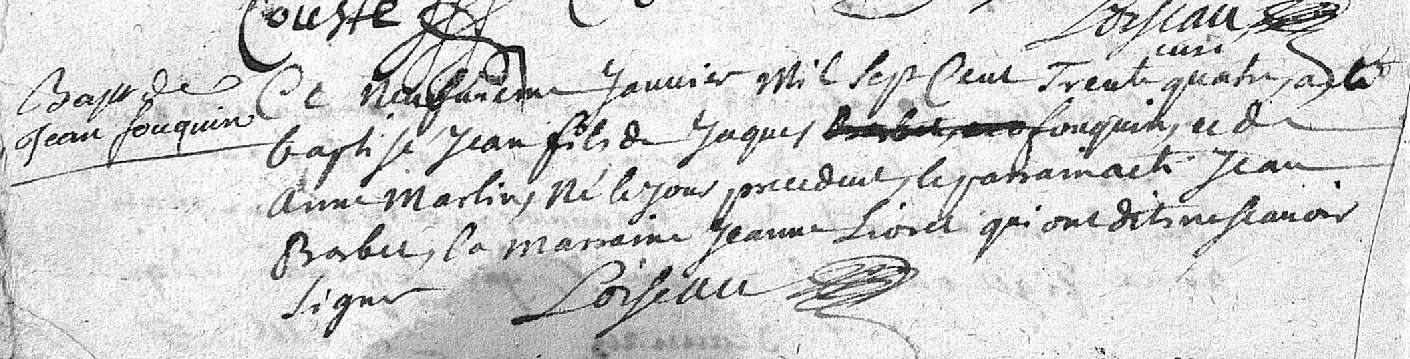 Couste
Loiseau
curé
Bapt de
Jean fouquin
Ce Neufvieme Janvier Mil Sept Cent Trente quatre, a été
baptisé Jean fils de Jaques fouquin, et de
Anne Martin, Né le jour precedent, le parrain a eté Jean
Barbet, la marraine Jeanne Lioret qui ont dits ne scavoir
signer
Loiseau